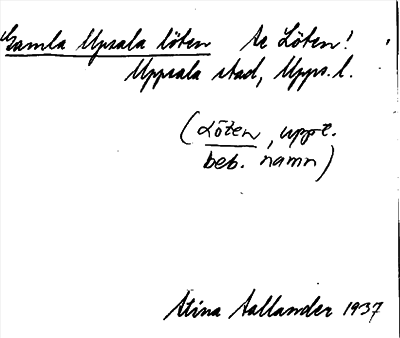 Gamla Upsala löten Se Löten!
Uppsala stad, Upps. l.
(Löten, uppt.
beb. namn)
Stina Aallander 1937